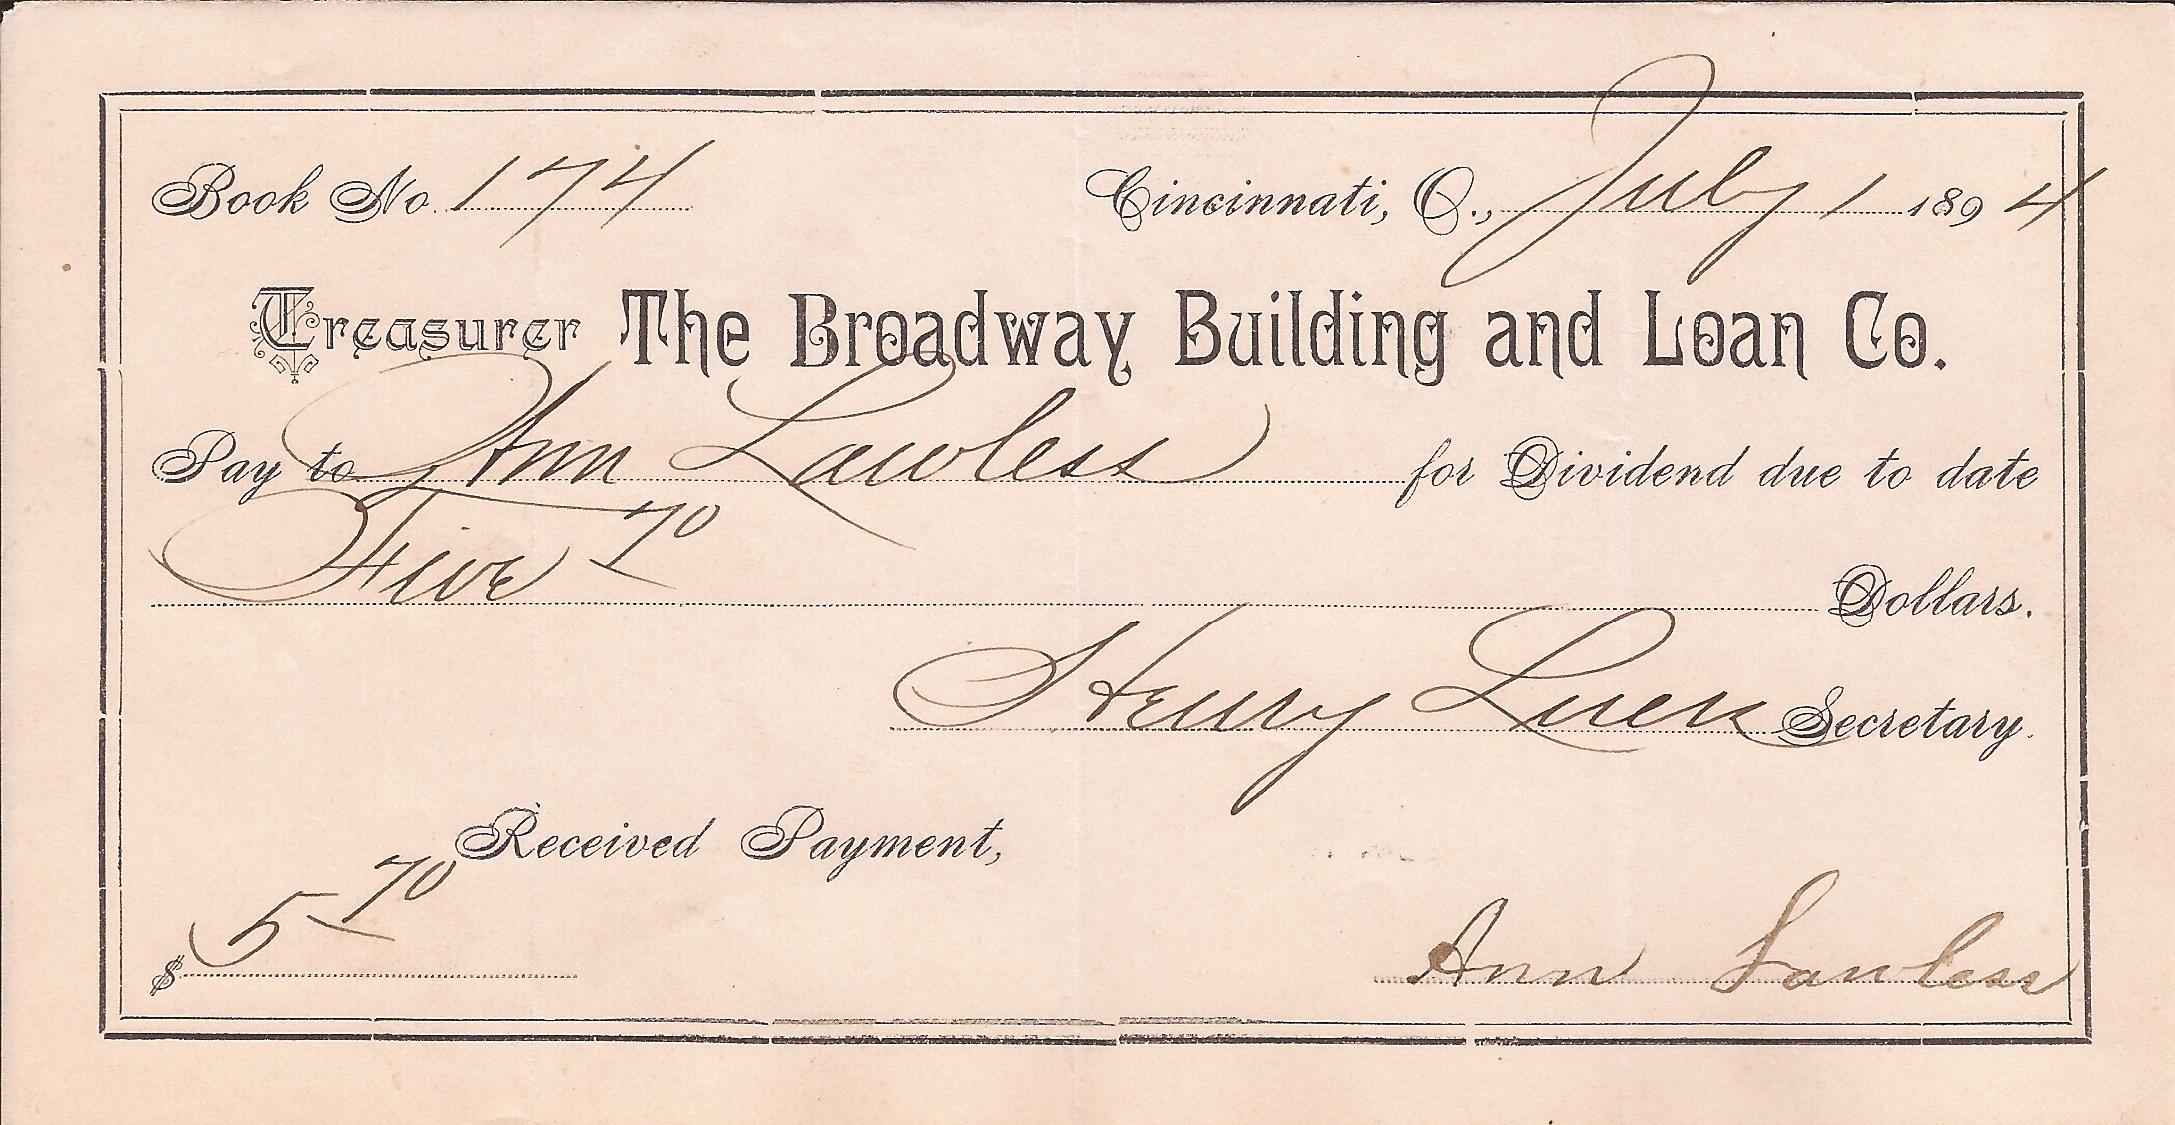 Book No. 174 Cincinnati, O., July 1 1894
Treasurer The Broadway Building and Loan Co.
Pay to Ann Lawless for Dividend due to date
Five 70 Dollars.
Henry Luers Secretary.
Received Payment,
$ 5 70
Ann Lawless